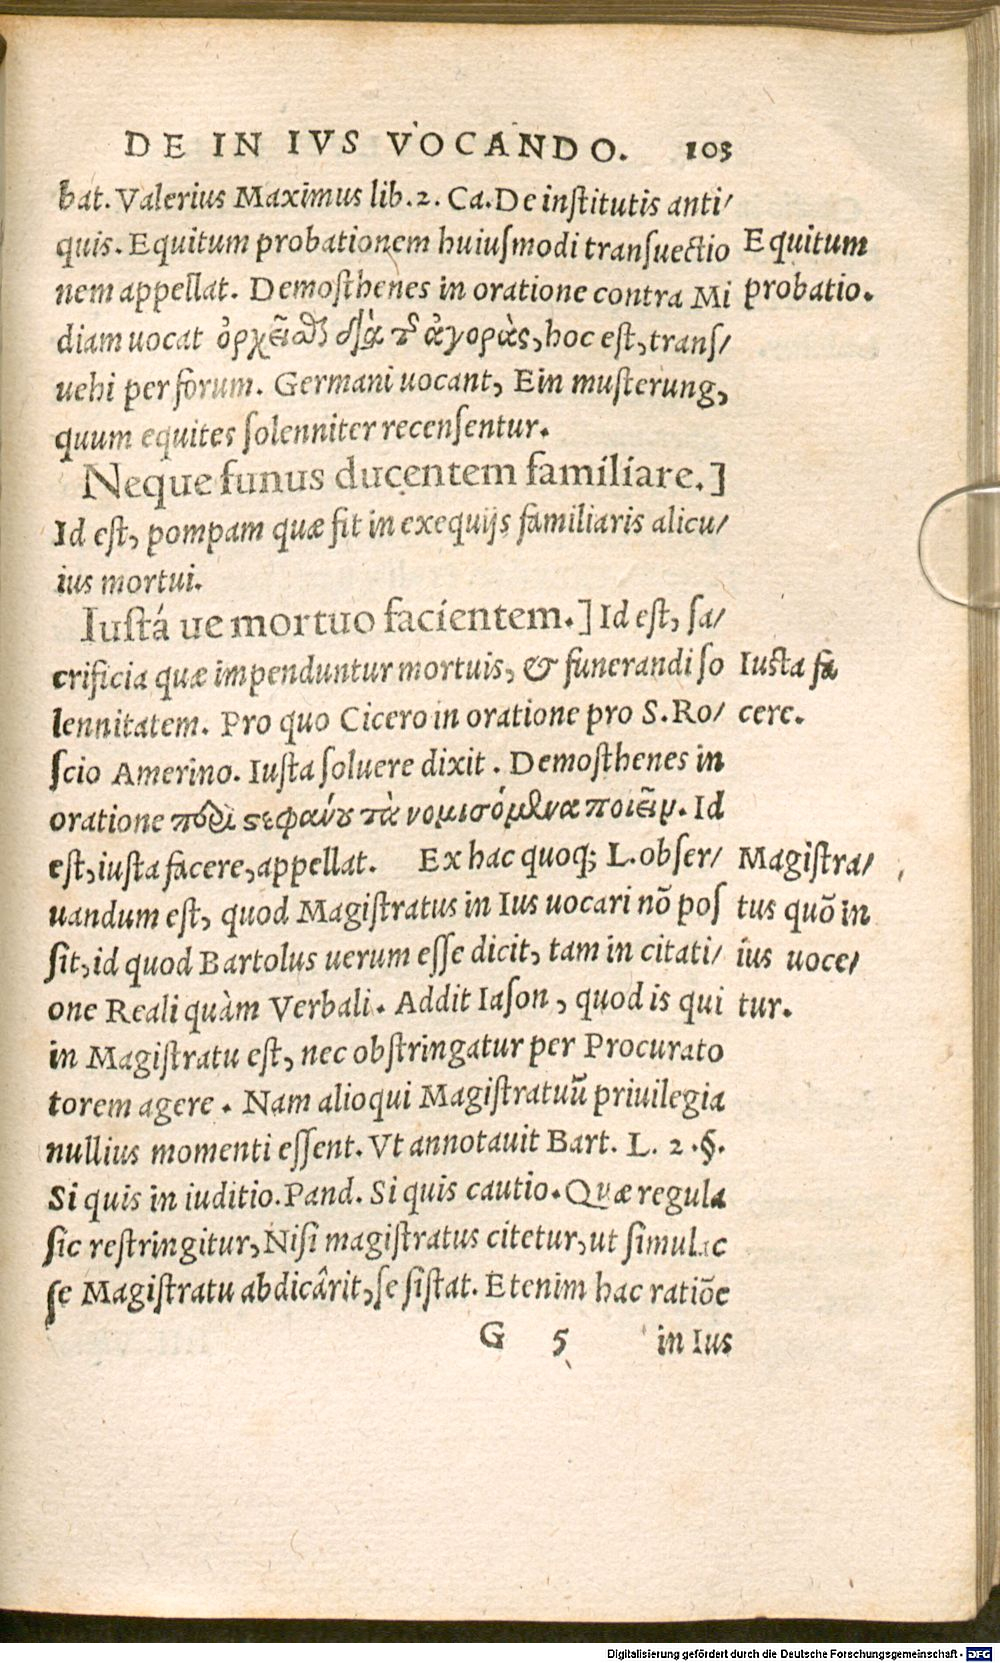 DE IN IVS VOCANDO. 103
bat. Valerius Maximus lib. 2. Ca. De institutis anti/
quis. Equitum probationem huiusmodi transuectio
nem appellat. Demosthenes in oratione contra Mi
diam uocat ὀρχεῖσθαι διὰ τῆς ἀγορὰς, hoc est, trans/
uehi per forum. Germani uocant, Ein musterung,
quum equites solenniter recensentur.
Equitum
probatio.
Neque funus ducentem familiare.]
Id est, pompam quæ fit in exequijs familiaris alicu/
ius mortui.
Iustá ue mortuo facientem.] Id est, sa/
crificia quæ impenduntur mortuis, & funerandi so
lennitatem. Pro quo Cicero in oratione pro S. Ro/
scio Amerino. Iusta soluere dixit. Demosthenes in
oratione περὶ στεφάνου τὰ νομισόμενα ποιεῖν. Id
est, iusta facere, appellat. Ex hac quoq; L. obser/
uandum est, quod Magistratus in Ius uocari nõ pos
sit, id quod Bartolus uerum esse dicit, tam in citati/
one Reali quàm Verbali. Addit Iason, quod is qui
in Magistratu est, nec obstringatur per Procurato
torem agere. Nam alioqui Magistratuũ priuilegia
nullius momenti essent. Vt annotauit Bart. L. 2. §.
Si quis in iuditio. Pand. Si quis cautio. Quæ regula
sic restringitur, Nisi magistratus citetur, ut simulac
se Magistratu abdicârit, se sistat. Etenim hac ratiõe
Iusta fa
cere.
Magistra/
tus quõ in
ius uoce/
tur.
G 5 in Ius
Digitalisierung gefördert durch die Deutsche Forschungsgemeinschaft - DFG